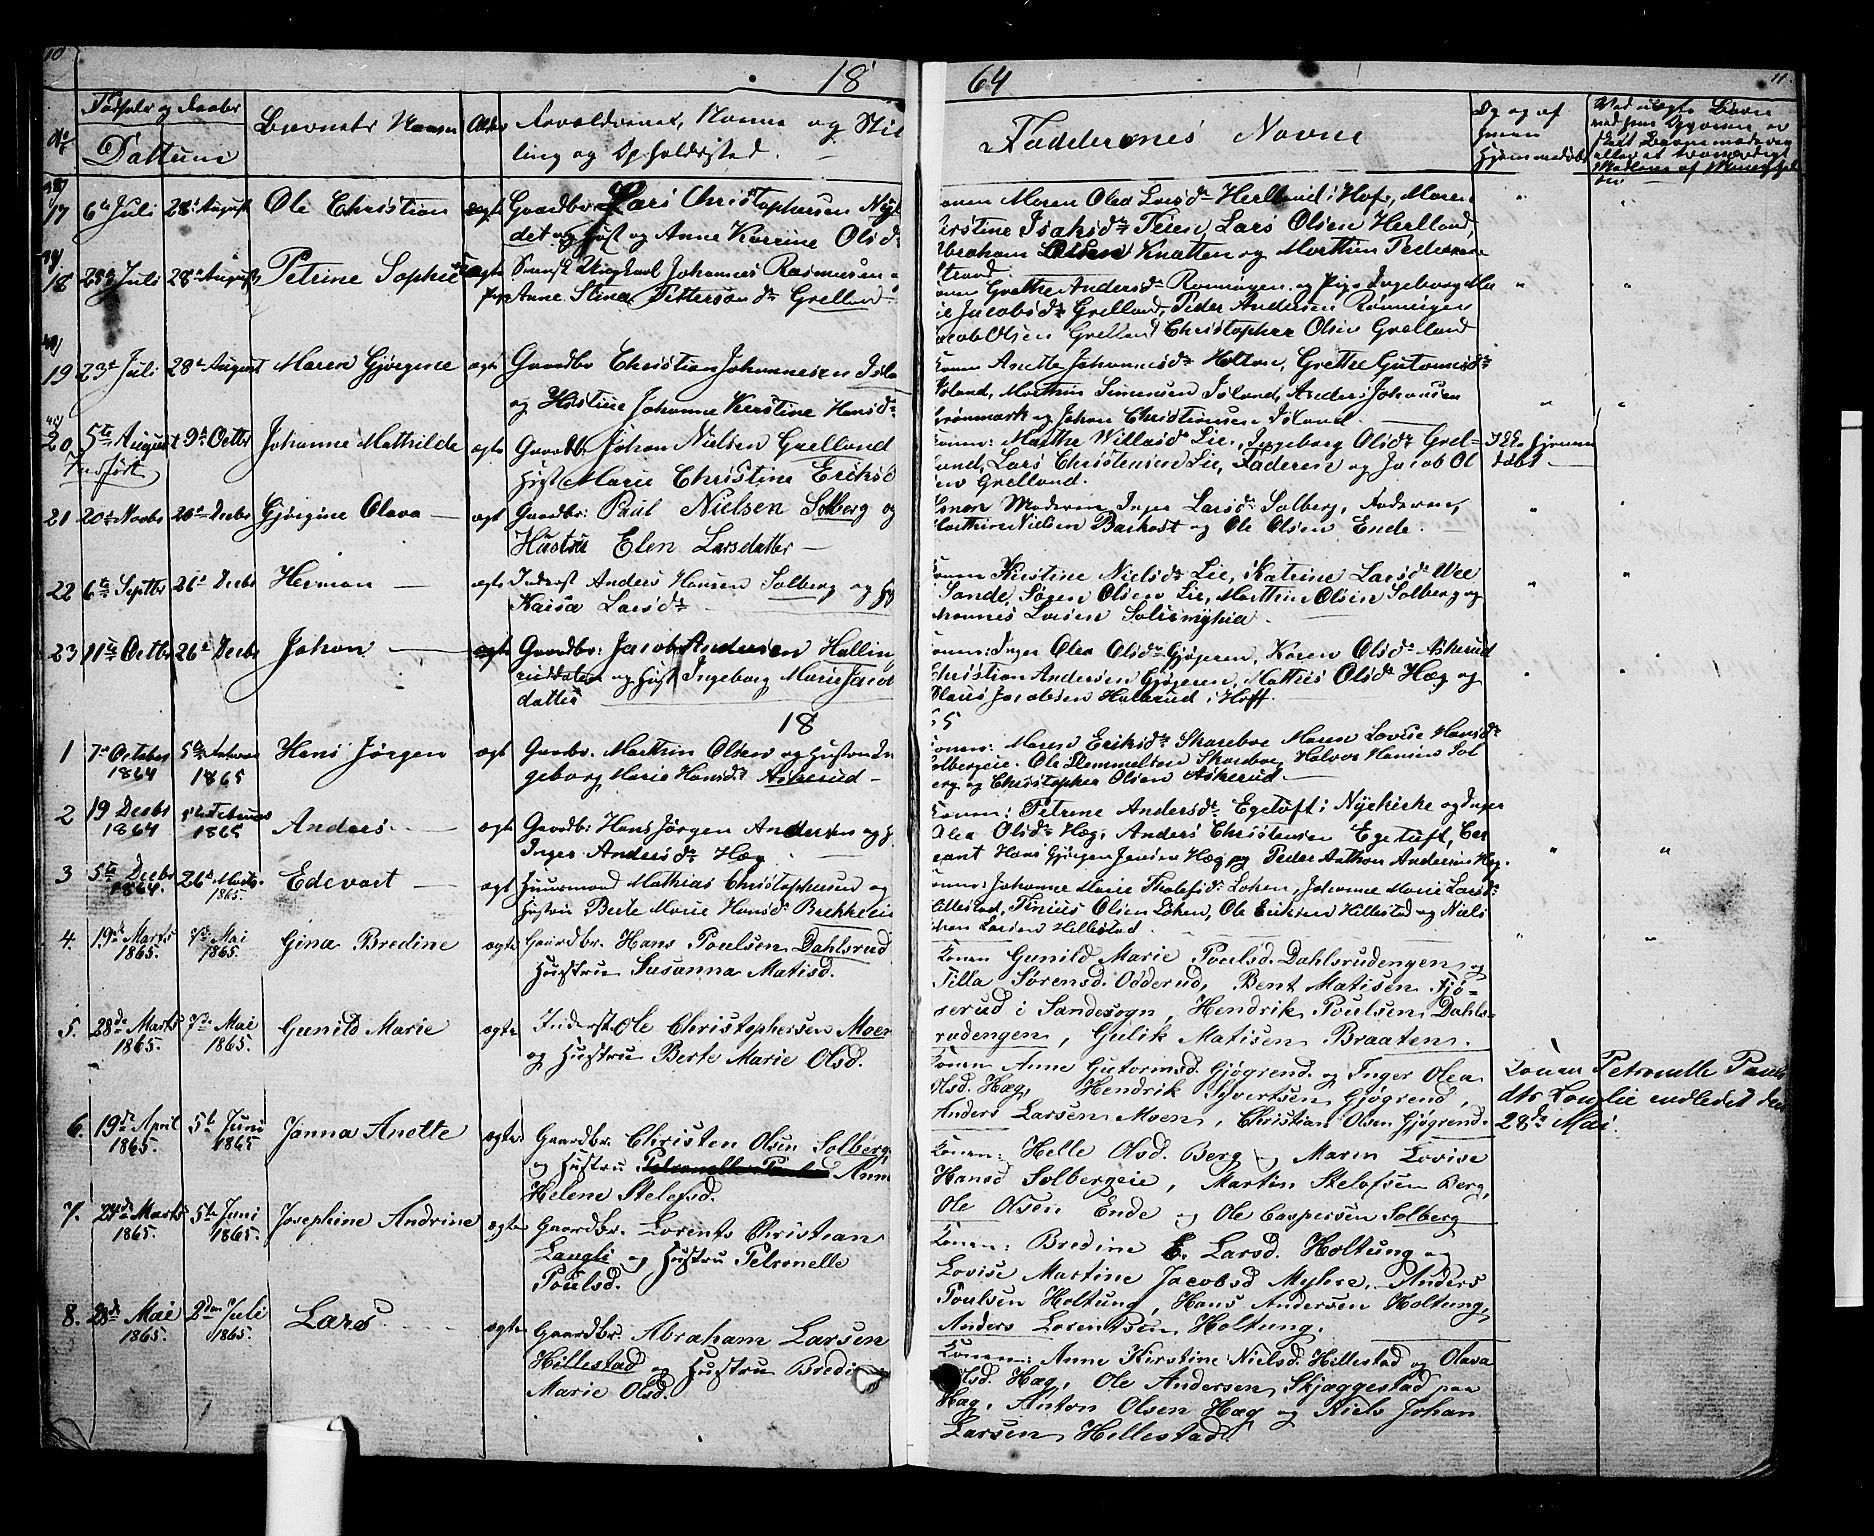 10
18
No
Fødsels og Daabs
Dattum
Barnets Navn
Alder
Forældrenes, Navne og Stil
ling og Opholdssted.
17 6te Juli 28de August Ole Christian ægte Gaardbr. Lars Christophersen
og Hust og Anne Karrine Olsd.
18 28de Juli 28de August Petrine Sophie ægte Svensk Ungkarl Johannes Rasmusen
Pige Anne Stina Pettersond. Grelland
19 23de Juli 28de August Maren Gjørgine ægte Gaardbr. Christian Johannesen
og Hustrue Johanne Kirstine Hansd.
20 5te August 9de Octbr Johanne Mathilde ægte Gaardbr Johan Nielsen Grelland
Indført
Hust Marie Christine Eriksd
21 20de Novbr 26de Decbr Gjørgine Olava ægt Gaardbr: Paul Nielsen Solberg og
Hustru Elen Larsdatter
22 6te Septbr 26de Decbr Herman ægte Inderst Anders Hansen Solberg og
Kaisa Larsd.
23 11te Octbr 26de Decbr Johan ægte Gaardbr: Jacob Andersen Halling
ruddalen og Hust Ingeborg Marie Jacob
datter
18
1 7de October 1864 5te Februar 1865 Hans Jørgen ægt Gaardbr. Marthin Olsen og Hustru In
geborg Marie Hansd. Askerud
2 19 Decbr 1864 5te Februar 1865 Anders ægte Gaardb: Hans Jørgen Andersen og
Inger Andersd. Hæg
3 5te Decbr 1864 26de Marts 1865. Edevart ægt Huusmand Mathias Christophersen og
Hustru Berte Marie Hansd. Brekkeeie
4. 19de Marts 1865. 7de Mai 1865. Gina Bredine ægte Gaardbr. Hans Poulsen Dahlsrud
Hustru Susanna Matisd.
5. 28de Marts 1865. 7de Mai 1865. Gunild Marie ægte Inderst Ole Christophersen Moen
og Hustru Berte Marie Olsd.
6. 19de April 1865. 5te Juni 1865 Janna Anette ægte Gaardbr. Christen Olsen Solberg
og Hustru Petronelle Poulsd Anne
Helene Stelefsd.
7. 24de Marts 1865. 5te Juni 1865. Josephine Andrine ægte Gaardbr. Lorents Christian
Langli og Hustru Petronelle
Poulsd.
8. 28de Mai 1865. 2den Juli 1865. Lars ægte Gaardbr. Abraham Larsen
Hillestad og Hustru Bredine
Marie Olsd.
64
11.
Faddernes Navne
Maren Olea Larsd. Herland i Hof, Maren
Isaksd. Teien, Lars Olsen Herland,
Abraham Olsen Knatten og Marthin Pedersen
Strand.
Grethe Andersd. Rønningen og Pige Ingeborg Ma
rie Jacobsd. Grelland, Peder Andersen Rønningen
Jacob Olsen Grelland Christopher Olsen Grelland
Anette Johannesd. Holtan, Grethe Gutormsd.
Island, Marthin Simensen Island, Anders Johansen
Grønmark og Johan Christensen Island.
Konen: Marthe Willasd. Lie, Ingeborg Olsd. Grel-
land, Lars Christensen Lie, Faderen og Jacob Ol
sen Grelland.
Ikke hjemme
døbt
Konen Moderen Inger Larsd. Solberg, Faderen,
Marthin Nielsen Barkost og Ole Olsen Ende.
Konen Kirstine Nielsd. Lie, Katrine Larsd. Wee
i Sande, Søren Olsen Lie, Marthin Olsen Solberg og
Johannes Larsen
Konen: Inger Olea Olsd. Gjøgeren, Karen Olsd. Askerud
Christian Andersen Gjøgeren, Mathis Olsd. Hæg og
Claus Jacobsen Halerud i Hoff.
65
Konen: Maren Eriksd. Skareboe Maren Lovise Hansd.
Solbergeie. Ole Klemmetsen Skarebog Halvor Hansen Sol
berg og Christopher Olsen Askerud
Konen: Petrine Andersd. Egetoft i Nyekirke og Inger
Olea Olsd. Hæg, Anders Christensen Egetuft, Cer
seant Hans Gjørgen Jensen Hæg og Peder Anthon Andersen Hæg.
Konen: Johanne Marie Tholefsd. Løken, Johanne Marie Larsd.
Hillestad, Tinius Olsen Løken, Ole Eriksen Hillestad og Niels
Johan Larsen Hillestad.
Konen Gunild Marie Poulsd. Dahlsrudengen og
Tilla Sørensd. Odderud, Bent Matisen Fjø-
serud i Sandesogn, Hendrik Poulsen Dahls-
rudengen, Gulik Matisen Braaten.
Konen Anne Gutormsd. Gjøgrend. og Inger Olea
Olsd. Hæg, Hendrik Syvertsen Gjøgrend,
Anders Larsen Moen, Christian Olsen Gjøgrend.
Konen Petronelle Pauls
dtr Langlie indledet den
28de Mai.
Konen: Helle Olsd. Berg og Maren Lovise
Hansd Solbergeie, Martin Stelofsen Berg,
Ole Olsen Ende og Ole Caspersen Solberg
Konen: Bredine E. Larsd. Holtung og
Lovise Martine Jacobsd Myhre, Anders
Poulsen Holtung, Hans Andersen Holtung,
Anders Lorentsen Holtung.
Konen: Anne Kirstine Nielsd. Hillestad og Olava
Olsd. Hæg, Ole Andersen Skjæggestad paa
Hæg, Anton Olsen Hæg og Niels Johan
Larsen Hillestad.